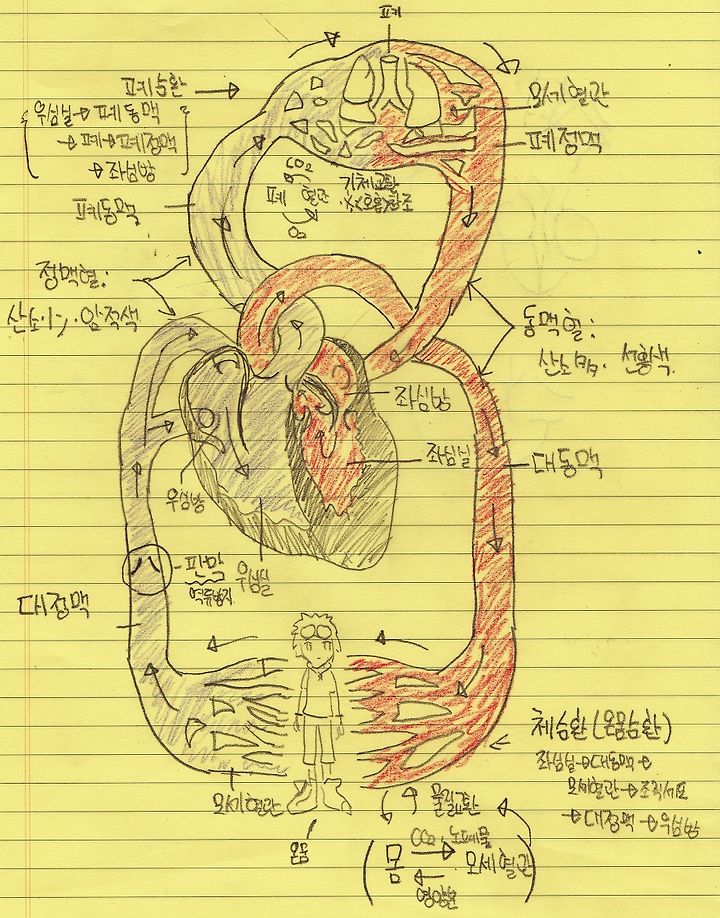 폐
폐순환
우심실→폐동맥
→폐→폐정맥
→좌심방
모세혈관
폐정맥
CO2
폐 혈관
O2
기체교환
폐동맥
정맥혈:
산소↓, 암적색
동맥혈:
산소 많, 선홍색.
좌심방
좌심실
대동맥
우심방
판막
역류방지
우심실
대정맥
모세혈관
온몸
체순환(온몸순환)
좌심실→대동맥→
모세혈관→조직세포
→대정맥→우심방
물질교환
CO2, 노폐물
몸 모세혈관
영양분